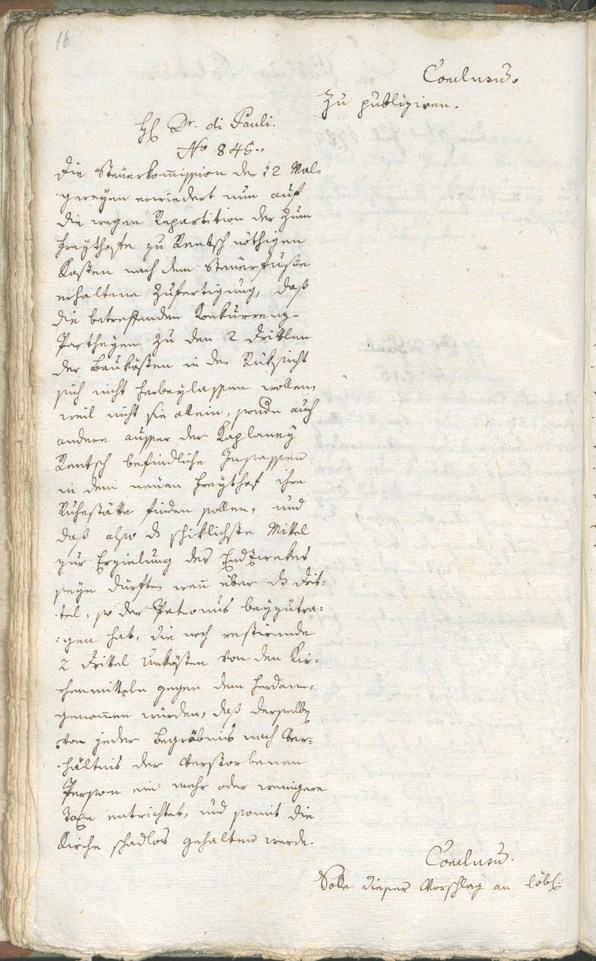 16
Conclusum.
Zu publiziren.
H. Dr. di Pauli.
No 845.
Die Steuerkommission der 12 Mal-
greyen erwiedert nun auf
die wegen Repartition der zum
Freythofe zu Rentsch nöthigen
Kosten nach dem Steuerfuße
erhaltene Zufertigung, daß
die betreffenden Konkurrenz-
Partheyen zu den 2 Dritlen
der Baukösten in der Rüksicht
sich nicht herbeylassen wollen,
weil nicht sie allein, sondern auch
andere ausser der Kaplaney
Rentsch befindliche Insassen
in dem neuen Freythof ihre
Ruhestätte finden sollen, und
daß also das schiklichste Mittel
zur Erzielung des Endzwekes
seyn dürfte, wenn über das Drit-
tel, so der Patronus beyzutra-
gen hat, die noch restirende
2 Drittel Unkösten von den Kir-
chenmitteln gegen dem herdann-
genommen würden, daß derselben
von jeder Begräbnis nach Ver-
hältnis der Verstorbenen
Person eine mehr oder wenigere
Taxe entrichtet, und somit die
Kirche schadlos gehalten werde.
Conclusum.
Solle dieser Vorschlag an löbl.